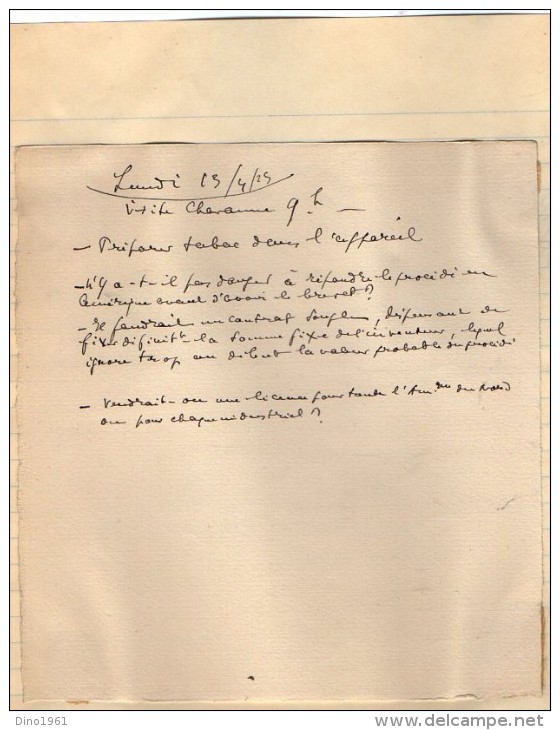 Lundi 13/4/25
Visite Chavanne 9 h —
— Préparer tabac dans l'appareil
— N'y a-t-il pas danger à répandre le procédé en
Amérique avant d'avoir le brevet ?
— Il faudrait un contrat souple, dispensant de
fixer définitt la somme fixe de l'inventeur, lequel
ignore trop au début la valeur probable du procédé
— Vendrait-on une licence pour toute l'Am. du Nord
ou pour chaque industriel ?
Dino1961
www.delcampe.net